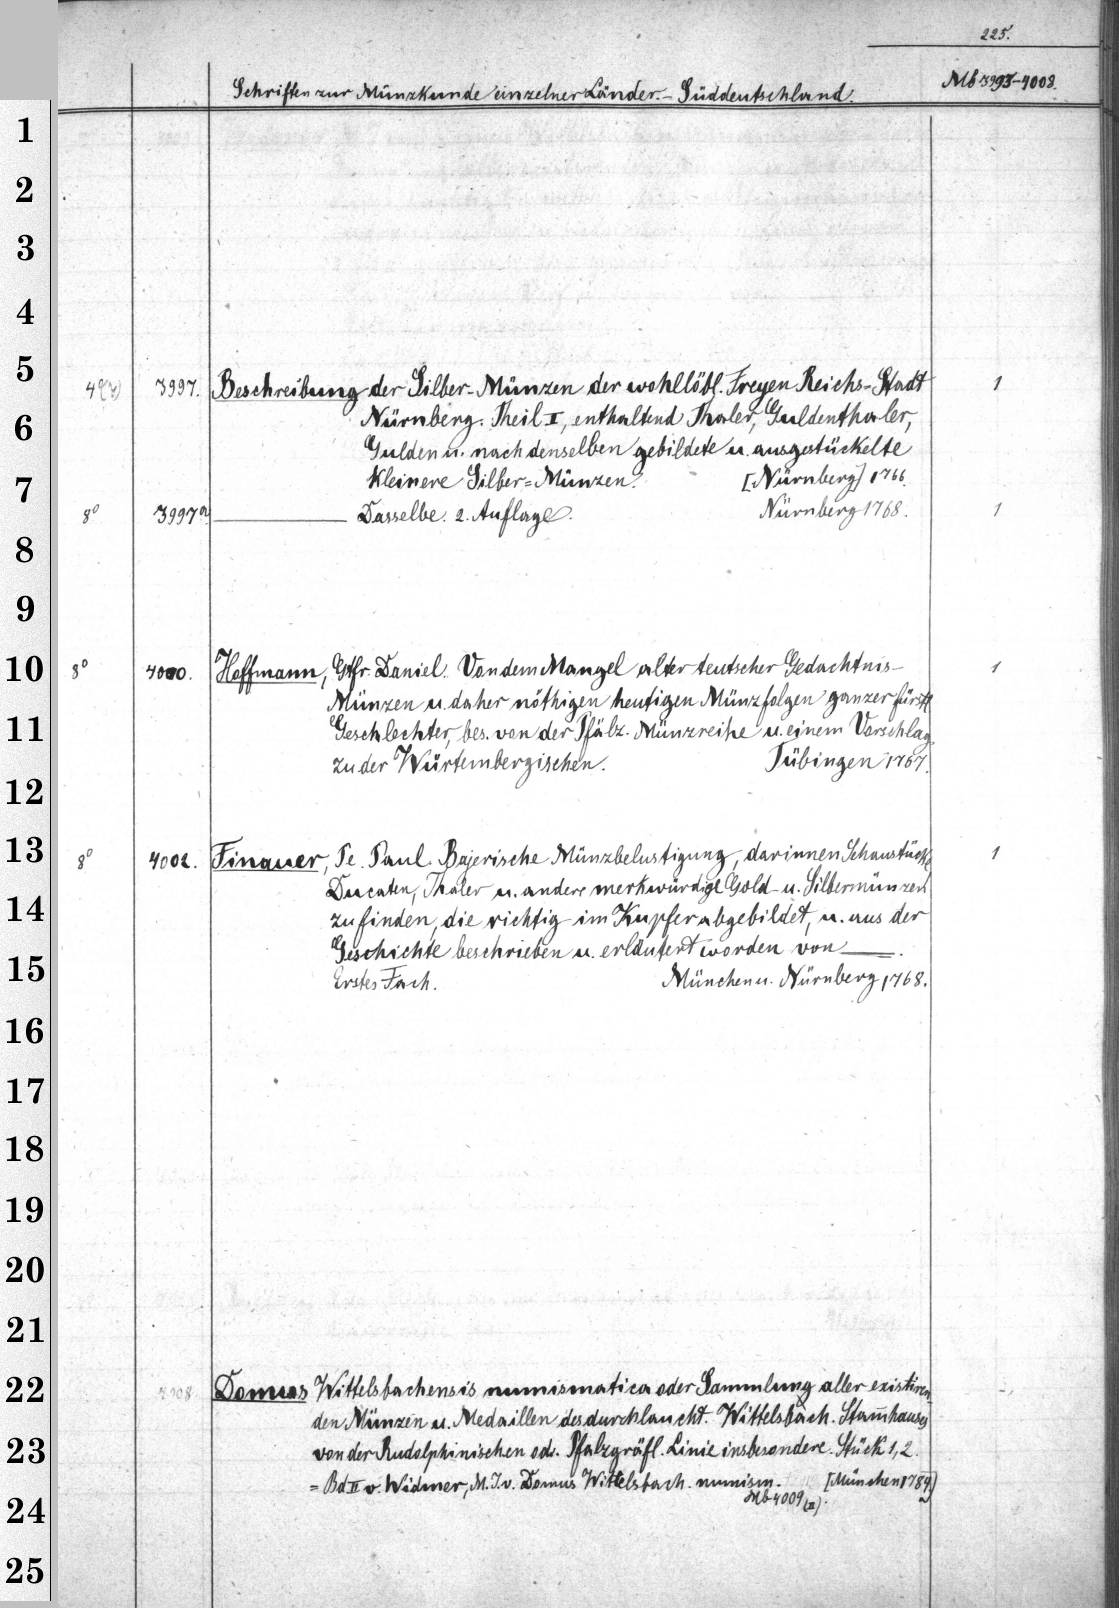 225.
Schriften zur Münzkunde einzelner Länder. – Süddeutschland.
Mb 3997–4008.
1
2
3
4
5
4°(?) 3997. Beschreibung der Silber-Münzen der wohllöbl. Freyen Reichs-Stadt 1
6
Nürnberg. Theil II, enthaltend Thaler, Guldenthaler,
Gulden u. nach denselben gebildete u. ausgestückelte
7
kleinere Silber-Münzen. [Nürnberg] 1766.
8° 3997a ——— Dasselbe. 2. Auflage. Nürnberg 1768. 1
8
9
10
8° 4000. Hoffmann, Gtfr. Daniel. Von dem Mangel alter teutscher Gedächtnis- 1
Münzen u. daher nöthigen heutigen Münzfolgen ganzer fürstl.
11
Geschlechter, bes. von der Pfälz. Münzreihe u. einem Vorschlag
zu der Würtembergischen. Tübingen 1767.
12
13
8° 4002. Finauer, Pe. Paul. Bajerische Münzbelustigung, darinnen Schaustücke, 1
Ducaten, Thaler u. andere merkwürdige Gold- u. Silbermünzen
14
zu finden, die richtig im Kupfer abgebildet, u. aus der
Geschichte beschrieben u. erläutert worden von ——.
15
Erstes Fach. München u. Nürnberg 1768.
16
17
18
19
20
21
22
4008. Domus Wittelsbachensis numismatica oder Sammlung aller existiren-
den Münzen u. Medaillen des durchlaucht. Wittelsbach. Stam̄hauses
23
von der Rudolphinischen od. Pfalzgräfl. Linie insbesondere. Stück 1, 2.
= Bd II v. Widmer, M. J. v. Domus Wittelsbach. numism. [München 1784]
24
Mb 4009 (II).
25